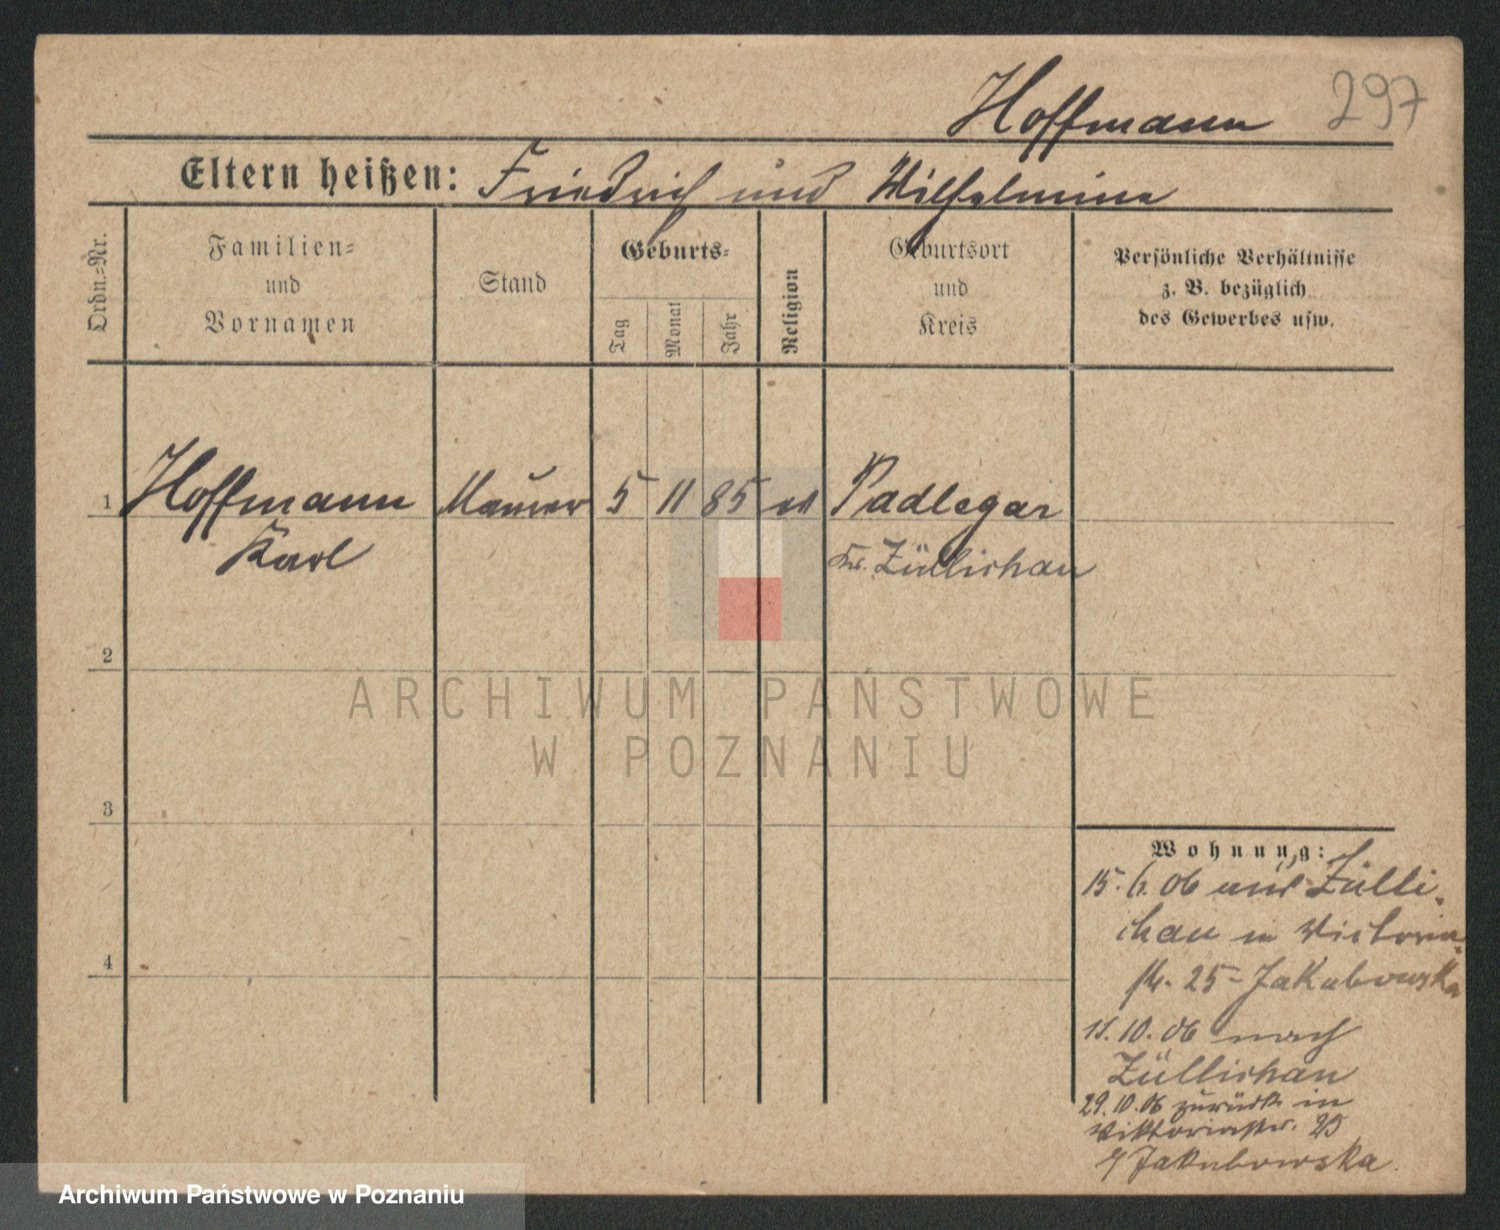 Hoffmann 297
Eltern heißen: Friedrich und Wilhelmine
Ordn.-Nr.
Familien-
und
Vornamen
Stand
Geburts-
Tag
Monat
Jahr
Religion
Geburtsort
und
Kreis
Persönliche Verhältnisse
z. B. bezüglich
des Gewerbes usw.
1 Hoffmann Maurer 5 11 85 Padlegar
Karl Kr. Züllichau
2
3
4
Wohnung:
15. 6. 06 aus Zülli-
chau in Victoria-
str. 25 - Jakubowska
11. 10. 06 nach
Züllichau
29. 10. 06 zurück in
Viktoriastr. 25
Jakubowska.
ARCHIWUM PAŃSTWOWE
W POZNANIU
Archiwum Państwowe w Poznaniu